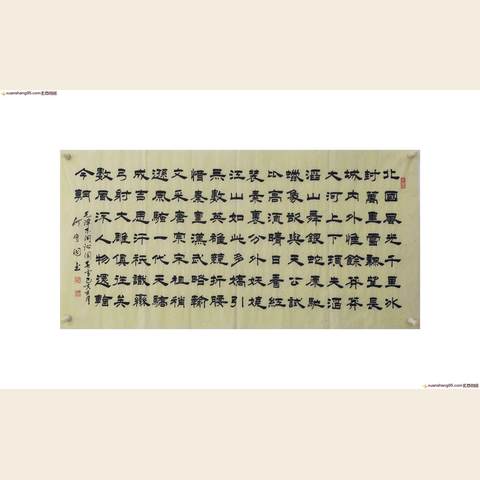 北國風光千里冰
封萬里雪飄望長
城內外惟餘莽莽
大河上下頓失滔
滔山舞銀蛇原馳
蠟象欲與天公試
比高須晴日看紅
裝素裹分外妖嬈
江山如此多嬌引
無數英雄競折腰
惜秦皇漢武略輸
文采唐宗宋祖稍
遜風騷一代天驕
成吉思汗祇識彎
弓射大雕俱往矣
數風流人物還看
今朝
毛澤東詞沁園春雪
xuanshang95.com
xuanshang95.com